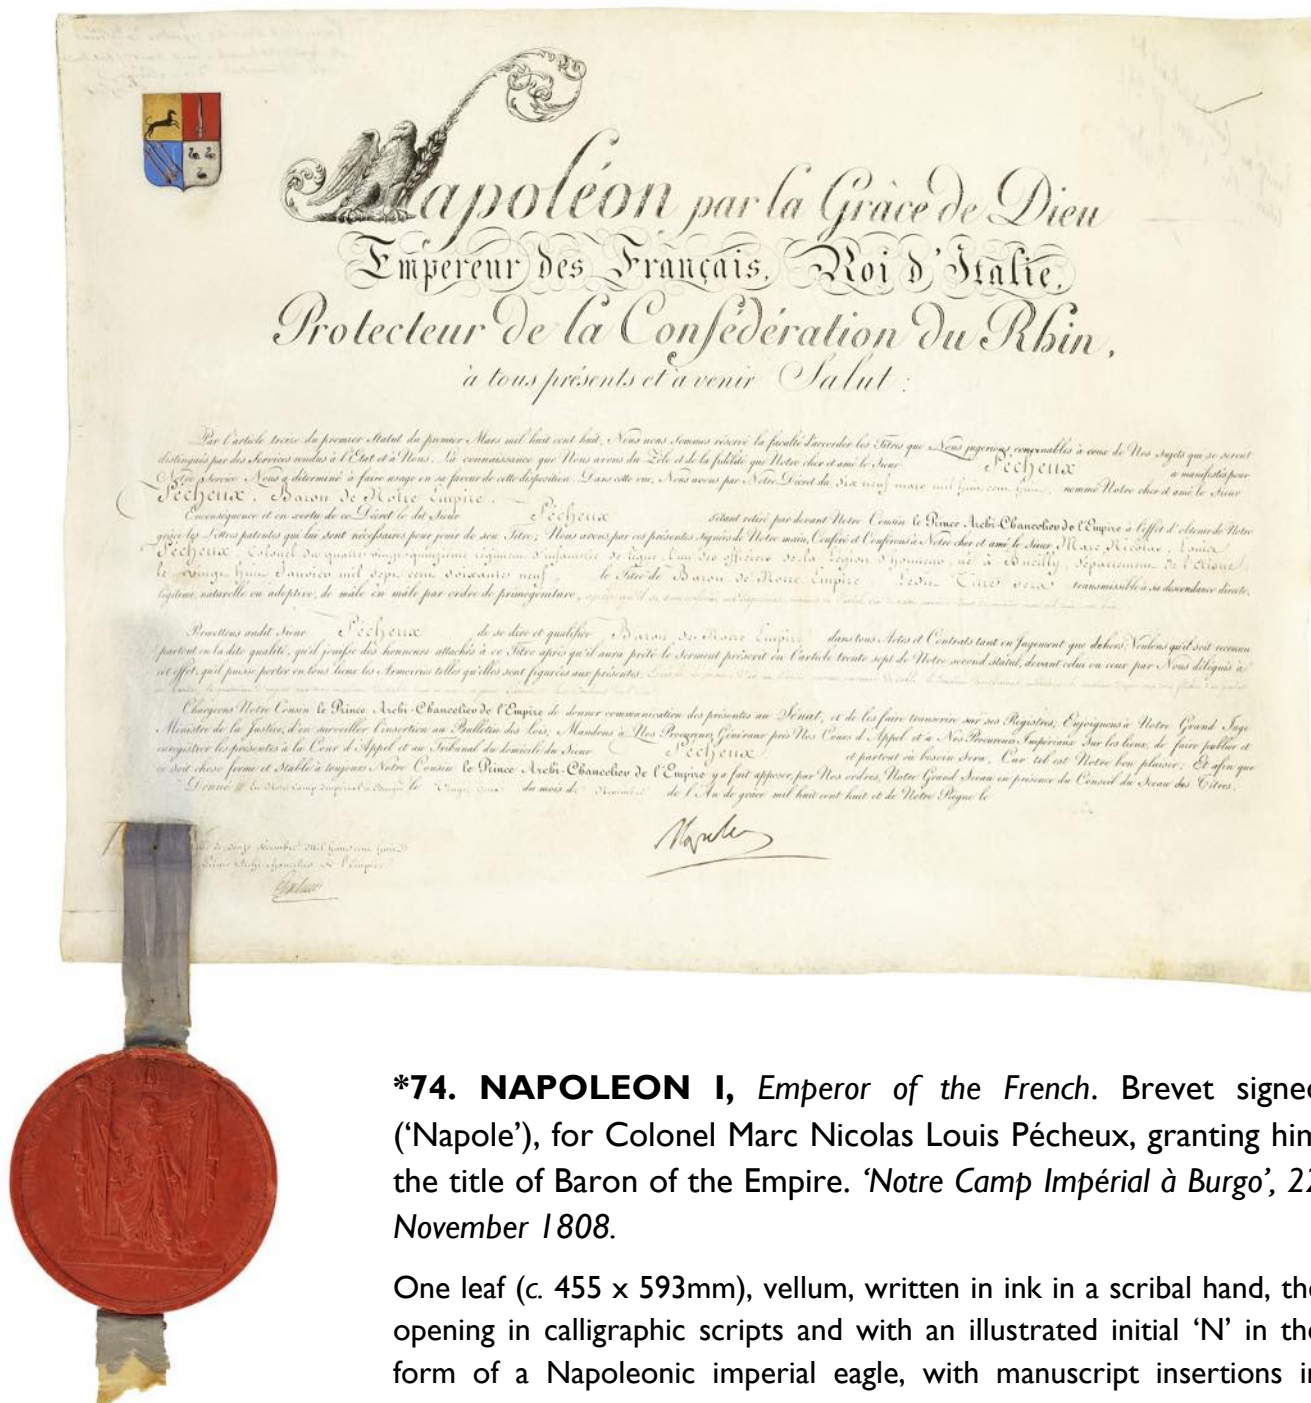 Napoléon par la Grâce de Dieu
Empereur des Français, Roi d'Italie,
Protecteur de la Confédération du Rhin,
à tous présents et à venir Salut :
Par l'article treize du premier Statut du premier Mars mil huit cent huit, Nous nous sommes réservé la faculté d'accorder les Titres que Nous jugerions convenables à ceux de Nos Sujets qui se seront
distingués par des Services rendus à l'Etat et à Nous. La connaissance que Nous avons du Zèle et de la fidélité que Notre cher et amé le Sieur Pécheux a manifestés pour
Notre Service Nous a déterminé à faire usage en sa faveur de cette disposition. Dans cette vue, Nous avons par Notre Décret du dix neuf mars mil huit cent huit, nommé Notre cher et amé le Sieur
Pécheux, Baron de Notre Empire.
En conséquence et en vertu de ce Décret le dit Sieur Pécheux s'étant retiré par devant Notre Cousin le Prince Archi-Chancelier de l'Empire à l'effet d'obtenir de Notre
grâce les Lettres patentes qui lui sont nécessaires pour jouir de son Titre; Nous avons par ces présentes signées de Notre main, Conféré et Conférons à Notre cher et amé le Sieur Marc Nicolas Louis
Pécheux, Colonel du quatre vingt quinzième régiment d'infanterie de ligne, l'un des officiers de la Légion d'honneur, né à Bucilly, département de l'Aisne,
le vingt huit Janvier mil sept cent soixante neuf, le Titre de Baron de Notre Empire. Ledit Titre sera transmissible à sa descendance directe,
légitime, naturelle ou adoptive, de mâle en mâle par ordre de primogéniture,
Permettons audit Sieur Pécheux de se dire et qualifier Baron de Notre Empire dans tous Actes et Contrats tant en Jugement que dehors; Voulons qu'il soit reconnu
partout en la dite qualité, qu'il jouisse des honneurs attachés à ce Titre après qu'il aura prêté le Serment prescrit en l'article trente sept de Notre second Statut, devant celui ou ceux par Nous délégués à
cet effet, qu'il puisse porter en tous lieux les Armoiries telles qu'elles sont figurées aux présentes.
Chargeons Notre Cousin le Prince Archi-Chancelier de l'Empire de donner communication des présentes au Sénat, et de les faire transcrire sur ses Registres; Enjoignons à Notre Grand Juge
Ministre de la Justice, d'en surveiller l'insertion au Bulletin des Lois; Mandons à Nos Procureurs Généraux près Nos Cours d'Appel et à Nos Procureurs Impériaux sur les lieux, de faire publier et
enregistrer les présentes à la Cour d'Appel et au Tribunal du domicile du Sieur Pécheux et partout où besoin sera; Car tel est Notre bon plaisir; Et afin que
ce soit chose ferme et stable à toujours Notre Cousin le Prince Archi-Chancelier de l'Empire y a fait apposer, par Nos ordres, Notre Grand Sceau en présence du Conseil du Sceau des Titres.
Donné en Notre Camp Impérial à Burgo le Vingt deux du mois de Novembre de l'An de grâce mil huit cent huit et de Notre Règne le
Napole
décembre mil huit cent huit
Prince Archi-Chancelier de l'Empire
*74. NAPOLEON I, Emperor of the French. Brevet signed
('Napole'), for Colonel Marc Nicolas Louis Pécheux, granting him
the title of Baron of the Empire. 'Notre Camp Impérial à Burgo', 22
November 1808.
One leaf (c. 455 x 593mm), vellum, written in ink in a scribal hand, the
opening in calligraphic scripts and with an illustrated initial 'N' in the
form of a Napoleonic imperial eagle, with manuscript insertions in